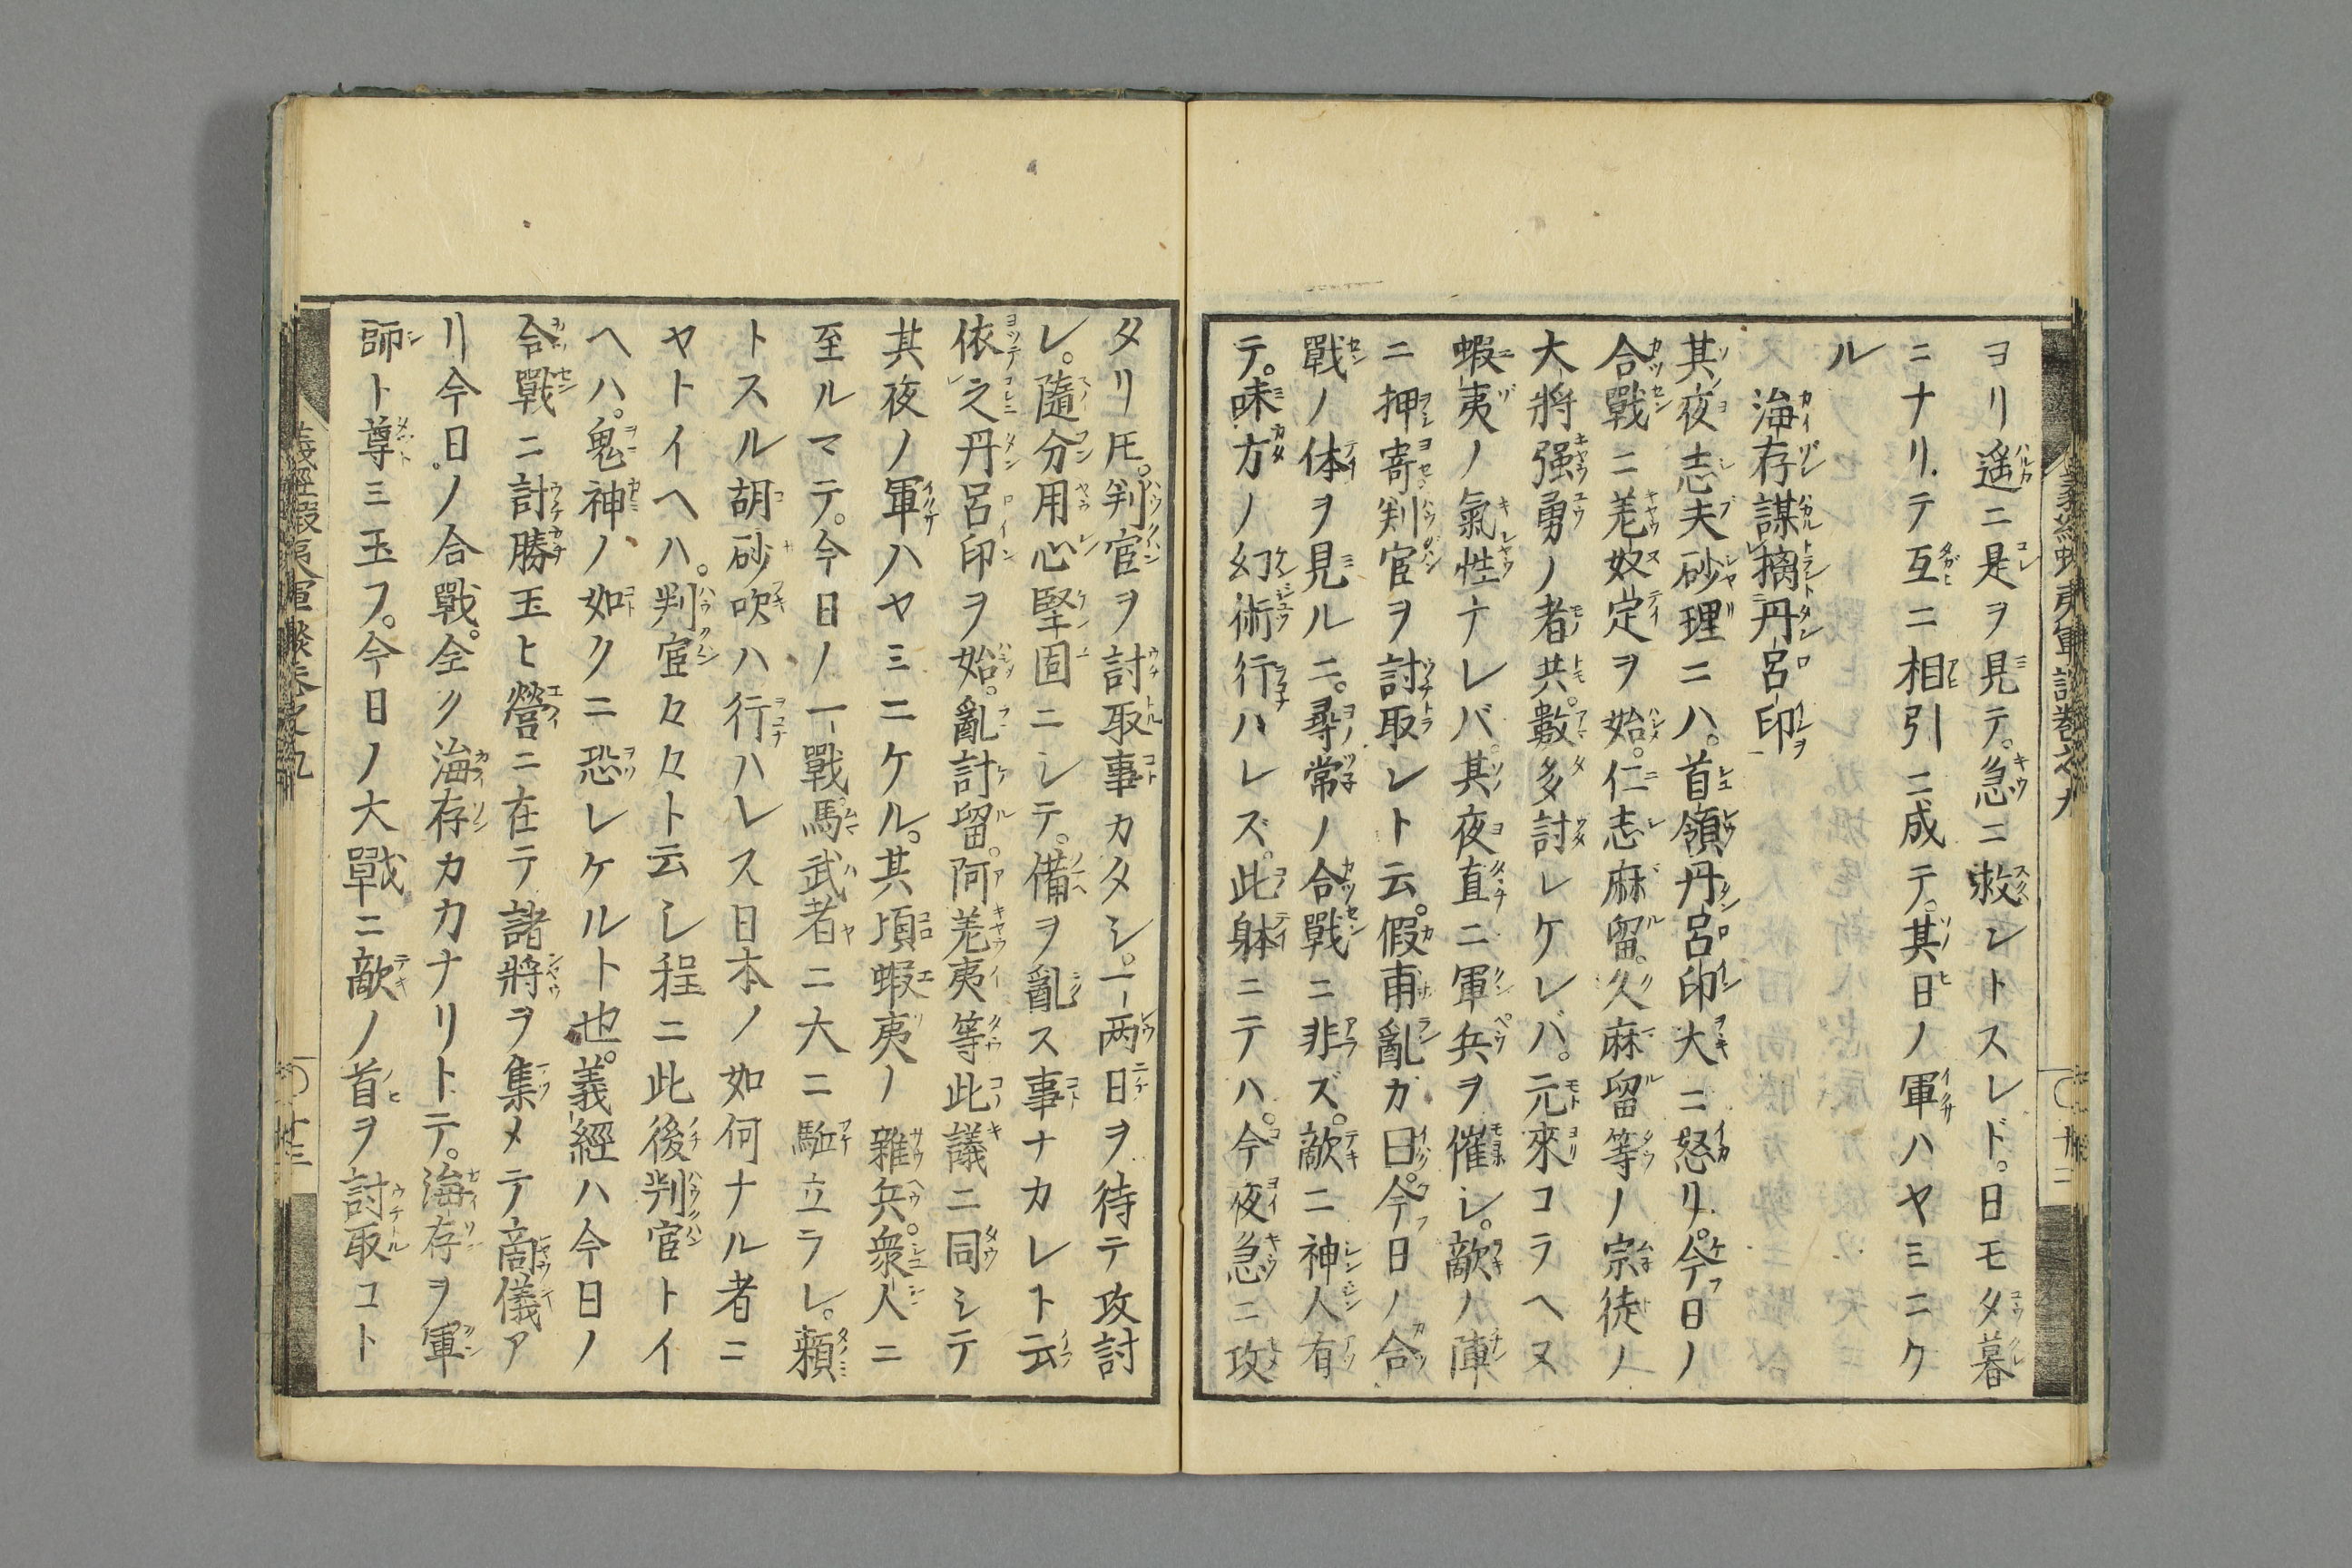 ヨリ遥ニ是ヲ見テ。急ニ救ントスレド。日モ夕暮
ニナリテ互ニ相引ニ成テ。其日ノ軍ハヤミニケ
ル
海存謀擒丹呂印
其夜志夫砂理ニハ。首領丹呂印大ニ怒リ。今日ノ
合戰ニ羌奴定ヲ始。仁志麻留。久麻留等ノ宗徒ノ
大將强勇ノ者共。數多討レケレバ。元來コラヘヌ
蝦夷ノ氣性ナレバ。其夜直ニ軍兵ヲ催シ。敵ノ陣
ニ押寄判官ヲ討取ント云。假甫亂カ曰。今日ノ合
戰ノ体ヲ見ルニ。尋常ノ合戰ニ非ズ。敵ニ神人有
テ。味方ノ幻術行ハレズ。此躰ニテハ。今夜急ニ攻
タリ𪜈。判官ヲ討取事カタシ。一两日ヲ待テ攻討
レ。隨分用心堅固ニシテ。備ヲ亂ス事ナカレト云
依之丹呂印ヲ始。亂討留。阿羌夷等此議ニ同シテ
其夜ノ軍ハヤミニケル。其頃蝦夷ノ雜兵。衆人ニ
至ルマテ。今日ノ一戰馬武者ニ大ニ駈立ラレ。頼
トスル胡砂吹ハ行ハレス日本ノ如何ナル者ニ
ヤトイヘハ。判官々々ト云シ程ニ此後判官トイ
ヘハ。鬼神ノ如クニ恐レケルト也。義經ハ今日ノ
合戰ニ討勝玉ヒ營ニ在テ諸將ヲ集メテ商儀ア
リ今日ノ合戰。全ク海存カカナリトテ。海存ヲ軍
師ト尊ミ玉フ。今日ノ大戰ニ敵ノ首ヲ討取コト
義經蝦夷軍談卷之九